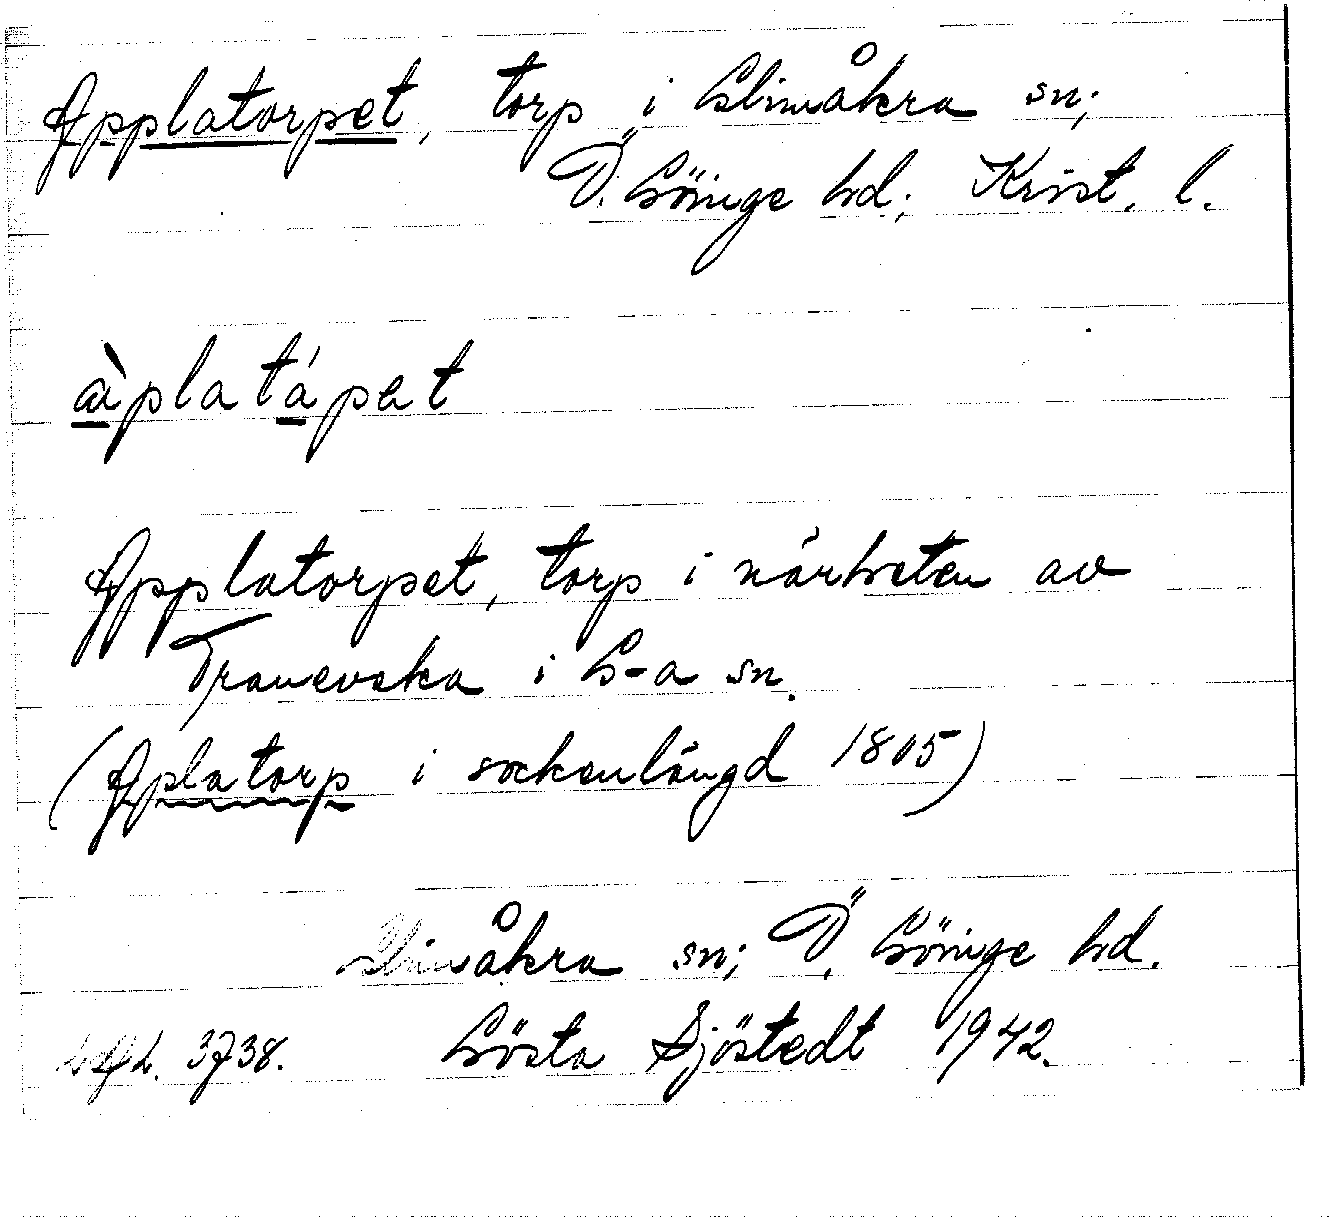 Applatorpet, torp i Glimåkra sn;
Ö. Göinge hd; Krist. l.
àplatápet
Applatorpet, torp i närheten av
Tranevska i G-a sn.
(Aplatorp i sockenlängd 1805)
Glimåkra sn; Ö. Göinge hd.
3738. Gösta Sjöstedt 1942.